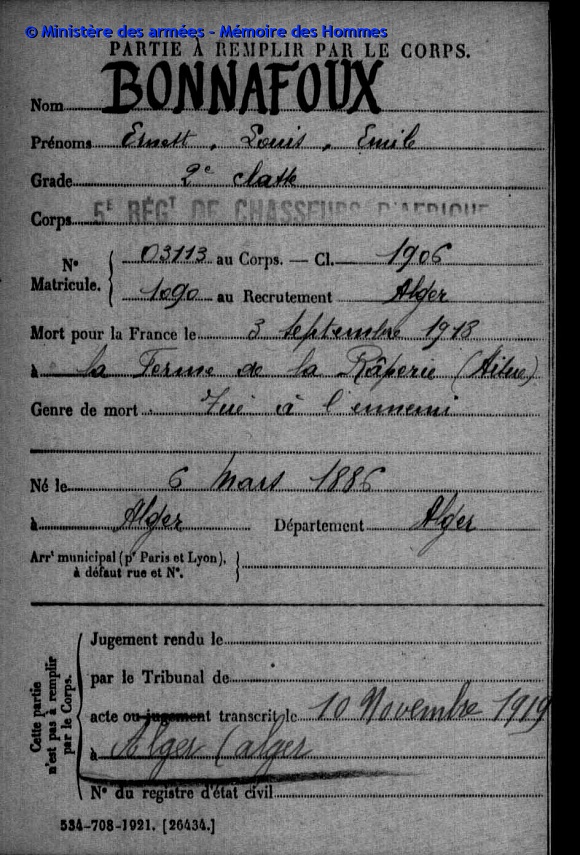 © Ministère des armées - Mémoire des Hommes
PARTIE À REMPLIR PAR LE CORPS.
Nom BONNAFOUX
Prénoms Ernest, Louis, Emile
Grade 2e classe
Corps 5E RÉGT DE CHASSEURS D'AFRIQUE
No Matricule. { 03113 au Corps. — Cl. 1906
1090 au Recrutement Alger
Mort pour la France le 3 septembre 1918
à la Ferme de la Râperie (Aisne)
Genre de mort Tué à l'ennemi
Né le 6 Mars 1886
à Alger Département Alger
Arrt municipal (pr Paris et Lyon), à défaut rue et No. }
Cette partie n'est pas à remplir par le Corps.
Jugement rendu le
par le Tribunal de
acte ou jugement transcrit le 10 Novembre 1919
à Alger (alger
No du registre d'état civil
534-708-1921. [26434.]